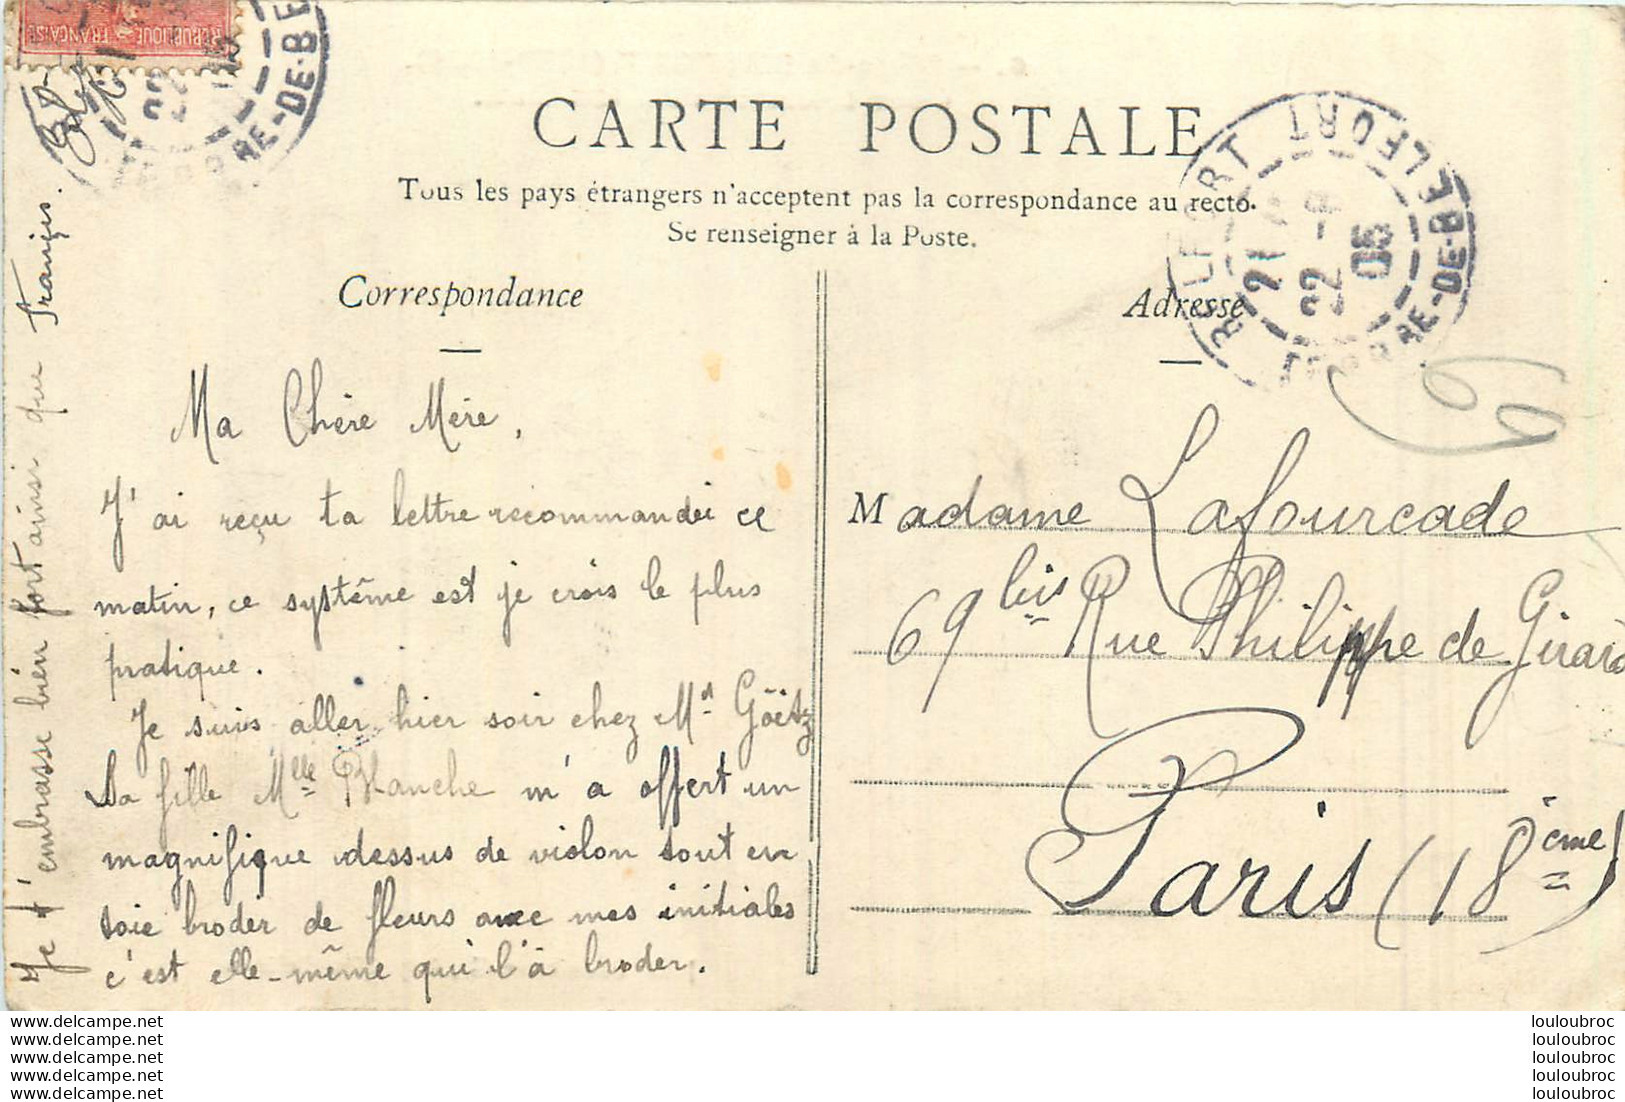 REPUBLIQUE FRANÇAISE
RE-DE-BE
CARTE POSTALE
Tous les pays étrangers n'acceptent pas la correspondance au recto.
Se renseigner à la Poste.
BELFORT
21
22 -8
05
TERRE-DE-BELFORT
Correspondance
Ma Chère Mère,
J'ai reçu ta lettre recommandéi ce
matin, ce système est je crois le plus
pratique.
Je suis aller hier soir chez Mr Göetz
Sa fille Melle Blanche m'a offert un
magnifique dessus de violon tout en
soie broder de fleurs avec mes initiales
c'est elle-même qui l'à broder.
Je t'embrasse bien fort ainsi que François.
Adresse
69
Madame Lafourcade
69 bis Rue Philippe de Girard
Paris (18ème)
www.delcampe.net
www.delcampe.net
www.delcampe.net
www.delcampe.net
www.delcampe.net
louloubroc
louloubroc
louloubroc
louloubroc
louloubroc